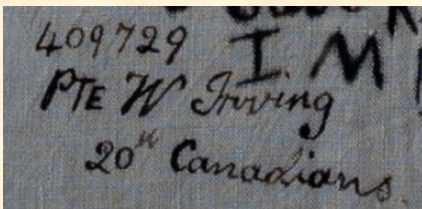 409729
I. M
PTE W Irving
20th Canadians.